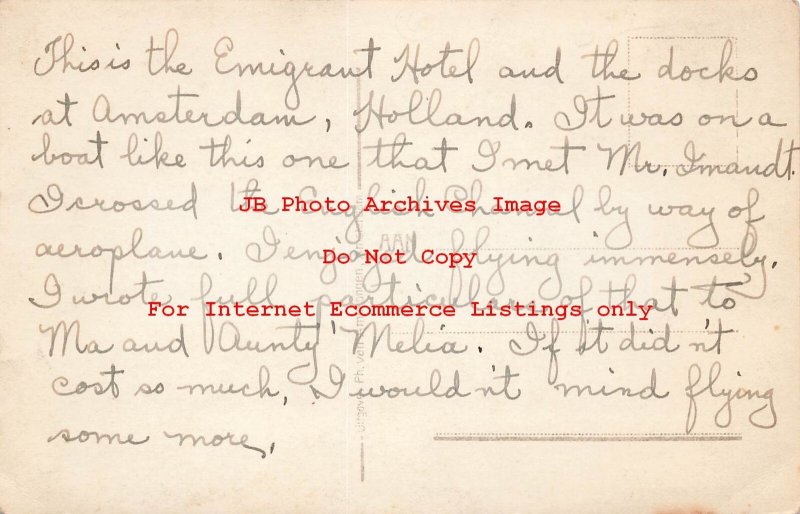 This is the Emigrant Hotel and the docks
at Amsterdam, Holland. It was on a
boat like this one that I met Mr. Imandt.
I crossed the English Channal by way of
JB Photo Archives Image
aeroplane. I enjoyed flying immensely.
AAN
Do Not Copy
I wrote full particulars of that to
For Internet Ecommerce Listings only
Ma and Aunty 'Melia. If it didn't
cost so much, I wouldn't mind flying
some more.